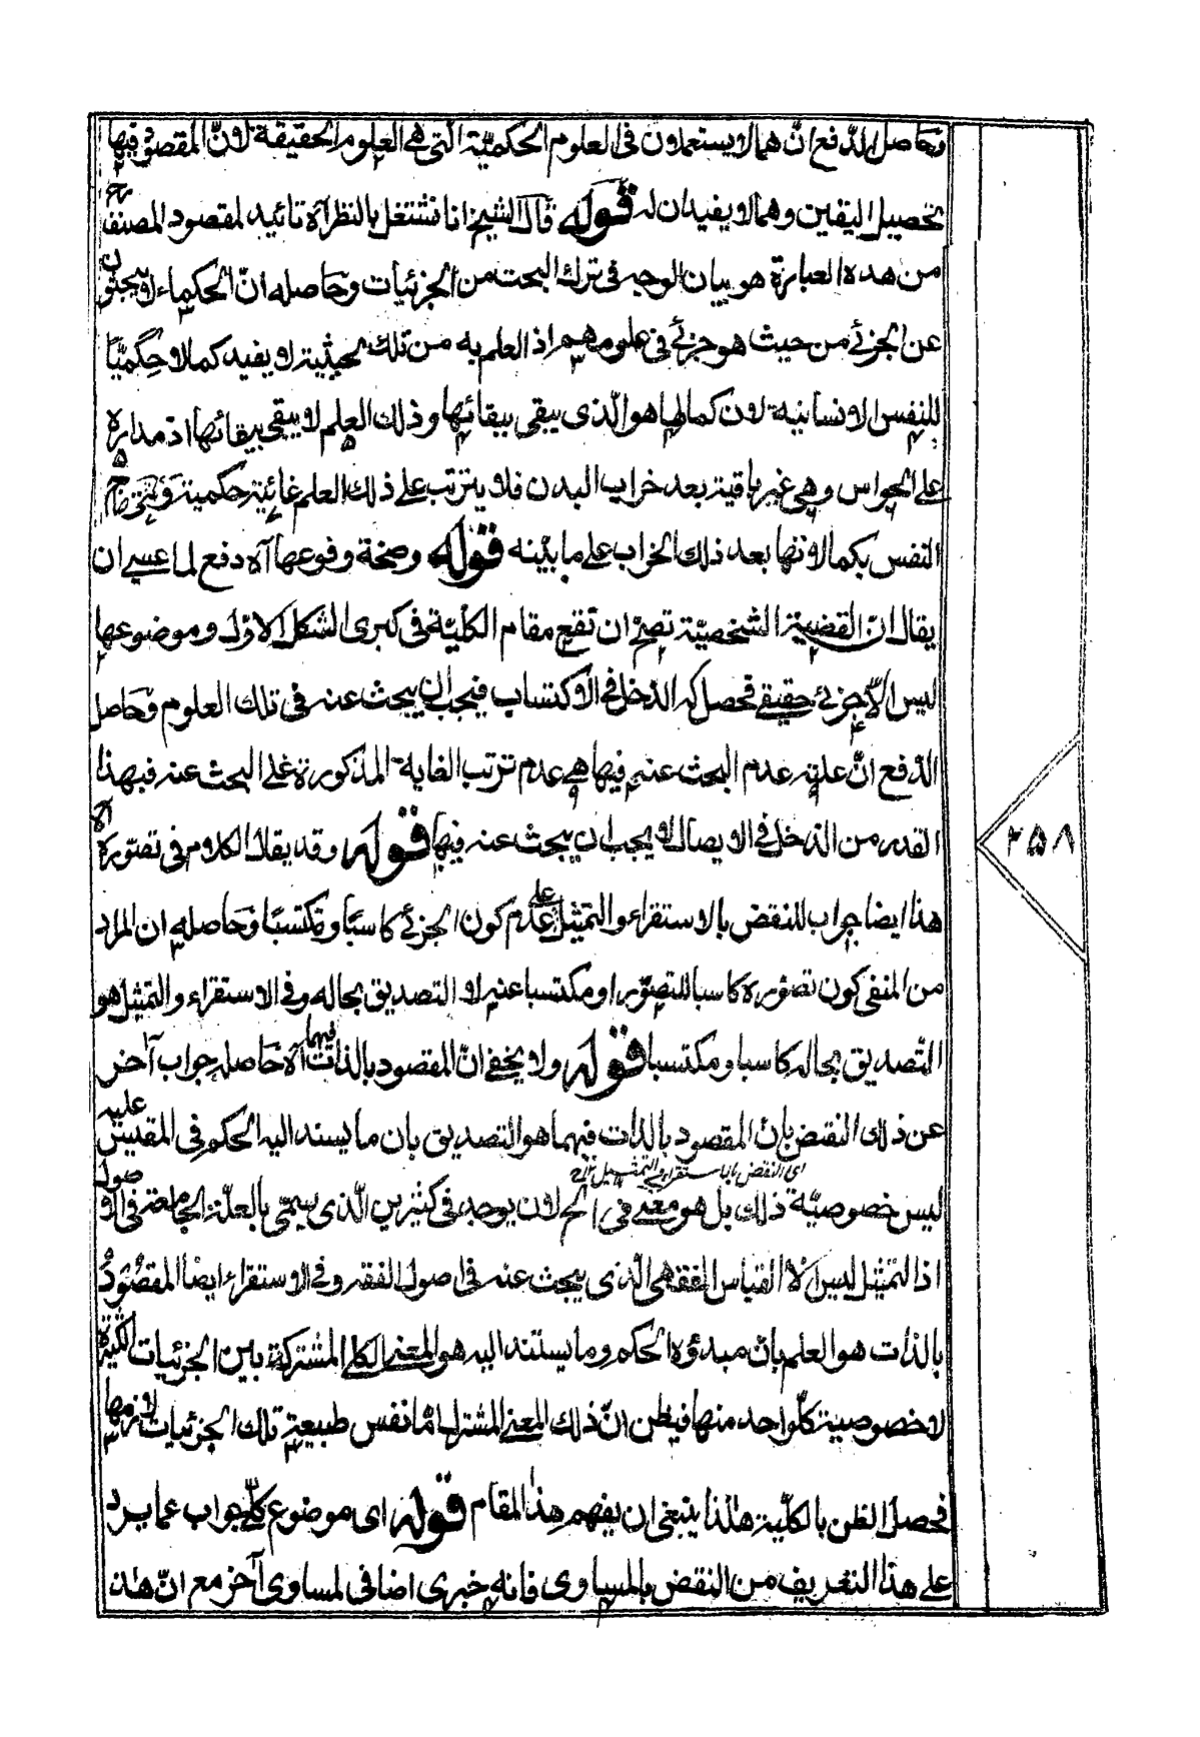 وحاصل الدفع انّ هما لا يستعملون فى العلوم الحكميّة الّتى هى العلوم الحقيقة لانّ المقصود فيها
تحصيل اليقين وهما لا يفيدان له قوله قال الشيخ انا نشتغل بالنظر آه تائيد لمقصود المصنف
من هذه العبارة هو بيان الوجه فى ترك البحث من الجزئيات وحاصله انّ الحكماء لا يبحثون
عن الجزئى من حيث هو جزئى فى علومهم اذ العلم به من تلك الحيثية لا يفيد كمالا حكميّا
للنفس الانسانية لان كمالها هو الّذى يبقى ببقائها وذلك العلم لا يبقى ببقائها اذ مداره
على الحواس وهى غير باقية بعد خراب البدن فلا يترتب على ذلك العلم غائية حكمية
النفس بكمالاتها بعد ذلك الخراب على ما بيّنه قوله وصحة وقوعها آه دفع لما عسى ان
يقال انّ القضية الشخصيّة تصحّ ان تقع مقام الكليّة فى كبرى الشكل الاوّل وموضوعها
ليس الّا جزئى حقيقى فحصل له الدخل فى الاكتساب فيجب ان يبحث عنه فى تلك العلوم وحاصل
الدفع انّ علة عدم البحث عنه فيها هى عدم ترتب الغاية المذكورة على البحث عنه فبهذا
القدر من الدخل فى الايصال لا يجب ان يبحث عنه فيها قوله وقد يقال الكلام فى تصوره آه
هذا ايضا جواب للنقض بالاستقراء والتمثيل على عدم كون الجزئى كاسبًا ومكتسبًا وحاصله ان المراد
من المنفى كون تصوّره كاسبا للتصوّر او مكتسبا عنه لا التصديق بحاله وفى الاستقراء والتمثيل هو
التّصديق بحاله كاسبا ومكتسبا قوله ولا يخفى انّ المقصود بالذات فيهما آه حاصله جواب آخر
عن ذلك النقض بانّ المقصود بالذات فيهما هو التصديق بان ما يسند اليه الحكم فى المقيس عليه
اى النقض بالاستقراء والتمثيل ١٢
ليس خصوصيّة ذلك بل هو معنى فى الحد لان يوجد فى كثيرين الّذى يسمّى بالعلّة الجامعة فى الاصول
اذ التمثيل ليس الّا القياس الفقهى الّذى يبحث عنه فى اصول الفقه وفى الاستقراء ايضًا المقصود
بالذات هو العلم بانّ مبدؤه الحكم وما يستند اليه هو المعنى الكلى المشتركة بين الجزئيات الكثيرة
لا خصوصية كلّ واحد منها فيظن انّ ذلك المعنى المشترك امّا نفس طبيعة تلك الجزئيات او لازمها
فحصل الظن بالكلية هكذا ينبغى ان يفهم هذا المقام قوله اى موضوع كلّى جواب عما يرد
على هذا التعريف من النقض بالمساوى فانه جزئى اضافى لمساوى آخر مع انّ هذا
٢٥٨